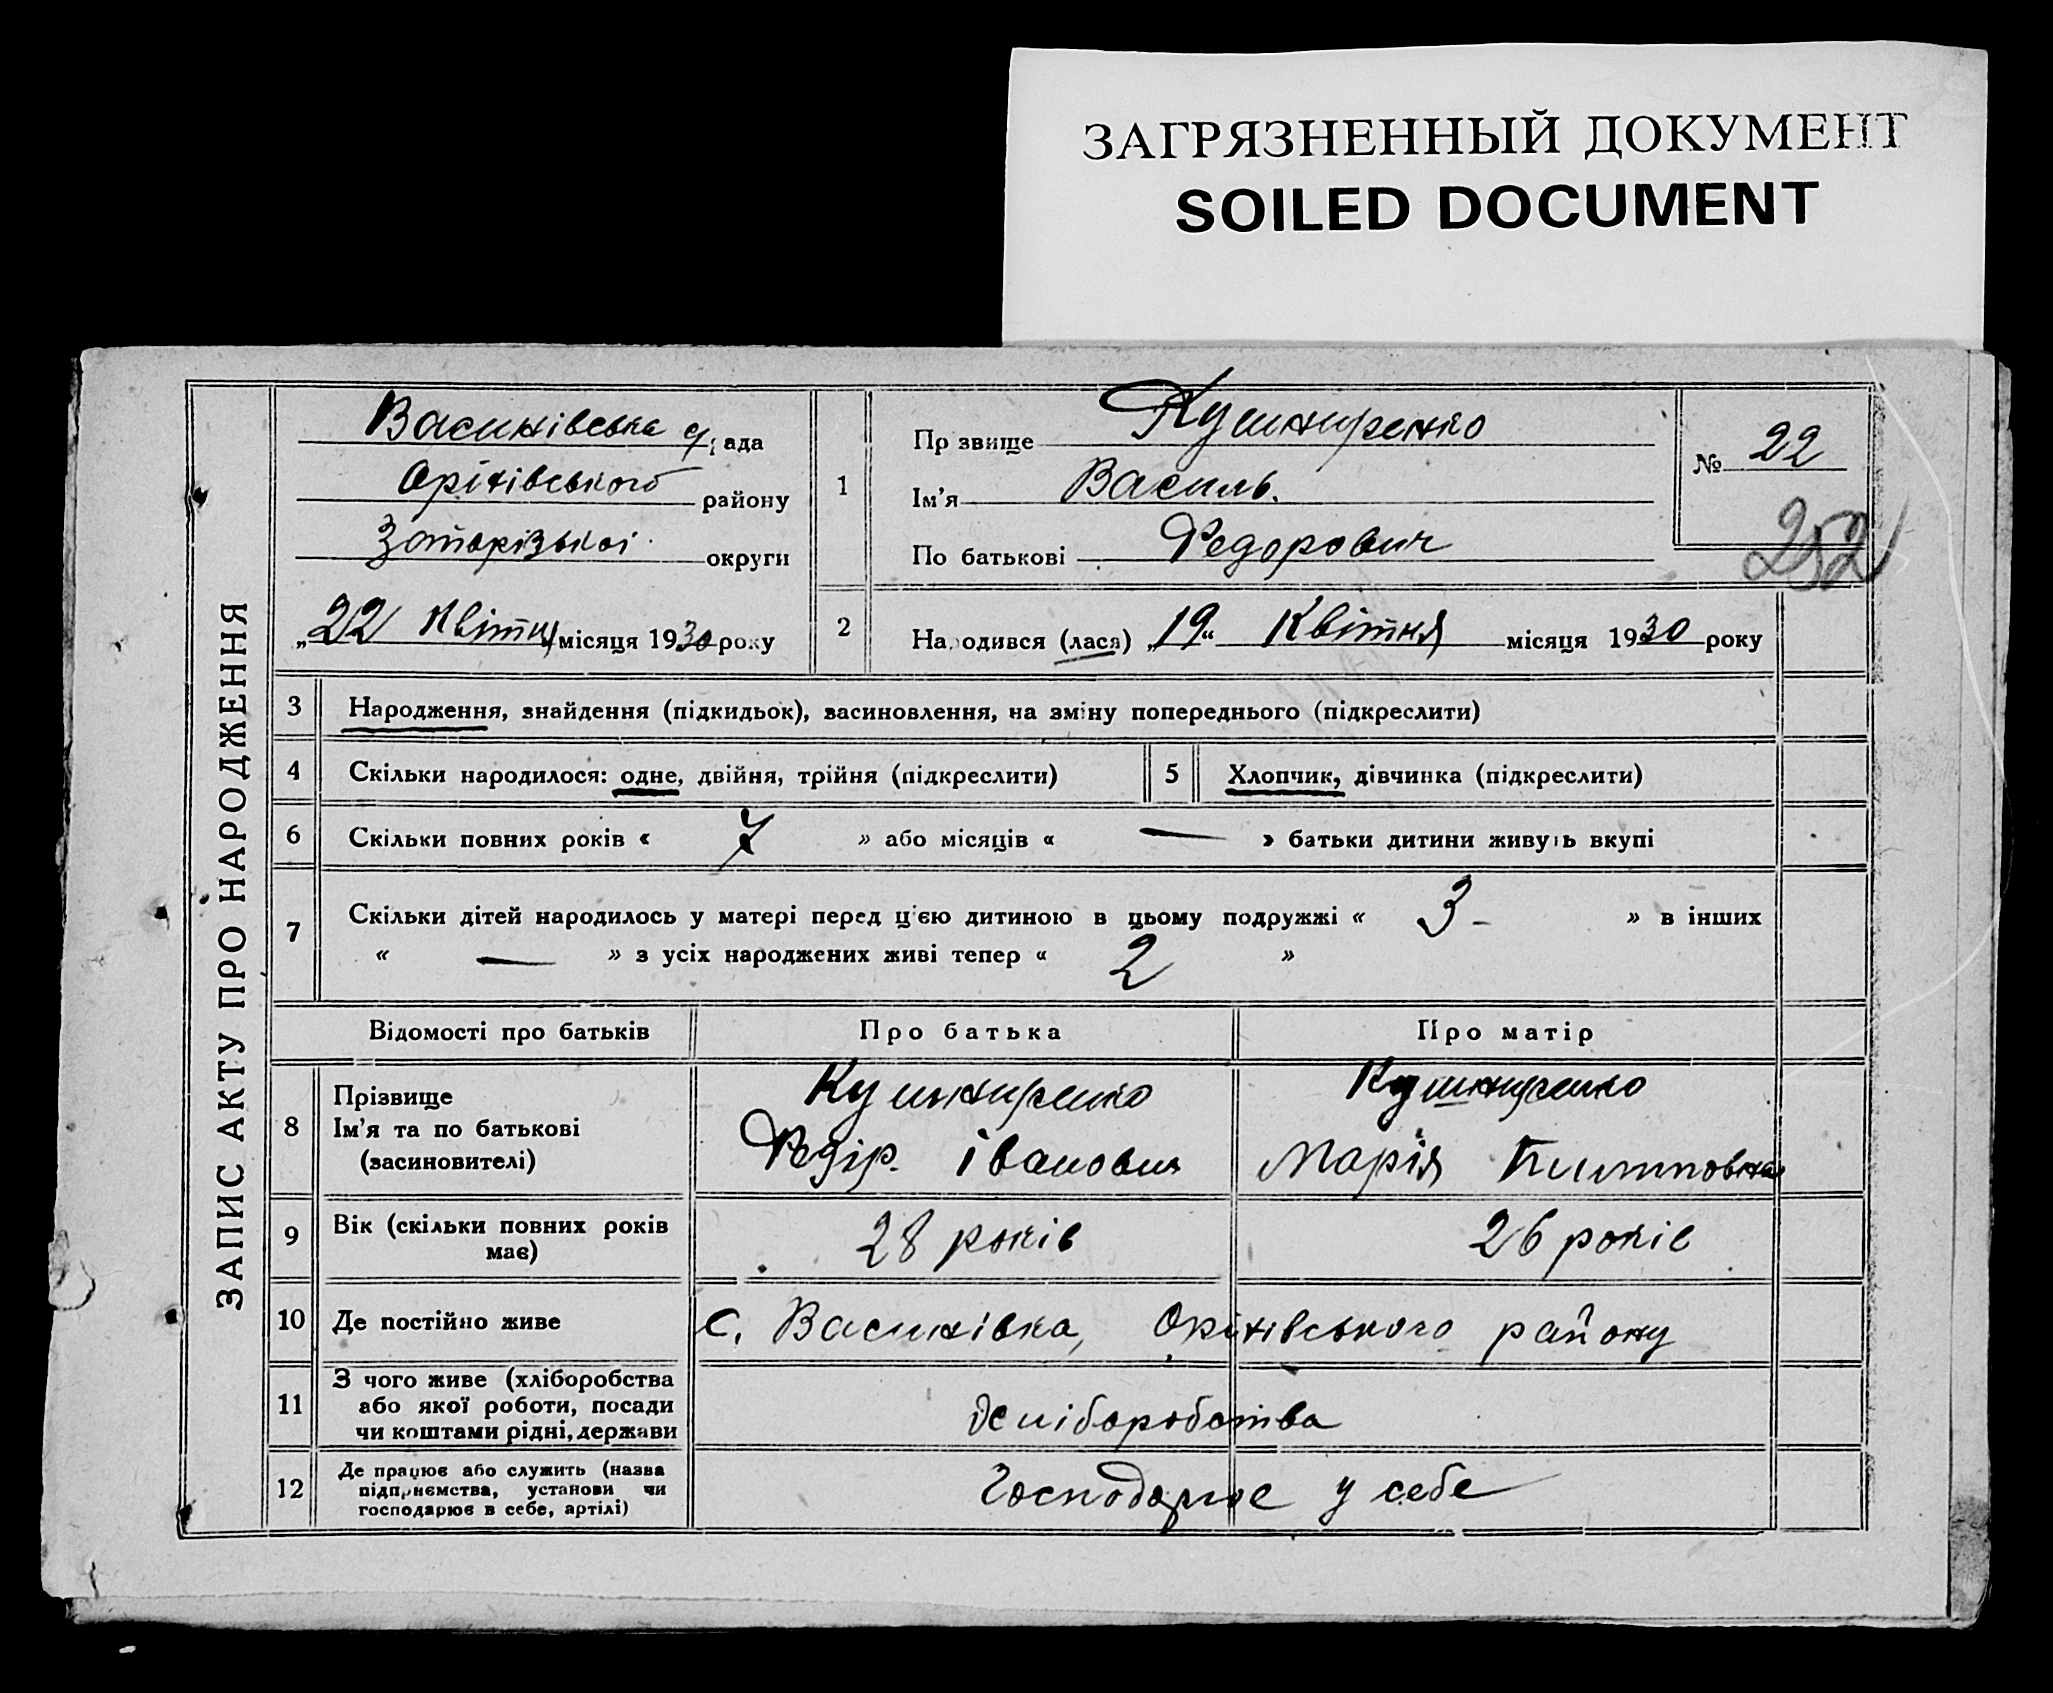 ЗАГРЯЗНЕННЫЙ ДОКУМЕНТ
SOILED DOCUMENT
ЗАПИС АКТУ ПРО НАРОДЖЕННЯ
Василівська с/рада
Оріхівського району
Запорізької округи
„22 Квітня місяця 1930 року
1
Прізвище Кушниренко
Ім'я Василь.
По батькові Федорович
№ 22
252
2 Народився (лася) „19“ Квітня місяця 1930 року
3 Народження, знайдення (підкидьок), васиновлення, на зміну попереднього (підкреслити)
4 Скільки народилося: одне, двійня, трійня (підкреслити) 5 Хлопчик, дівчинка (підкреслити)
6 Скільки повних років « 7 » або місяців « — » батьки дитини живуть вкупі
7 Скільки дітей народилось у матері перед цією дитиною в цьому подружжі « 3 – » в інших
« — » з усіх народжених живі тепер « 2 »
Відомості про батьків Про батька Про матір
8 Прізвище
Ім'я та по батькові
(васиновителі)
Кушниренко
Федір. Іванович
Кушниренко
Марія Пилиповна
9 Вік (скільки повних років
має)
28 років 26 років
10 Де постійно живе с. Василівка, Оріхівського району
11 З чого живе (хліборобства
або якої роботи, посади
чи коштами рідні, держави
Хліборобства
12 Де працює або служить (назва
підприємства, установи чи
господарює в себе, артілі)
Господарює у себе